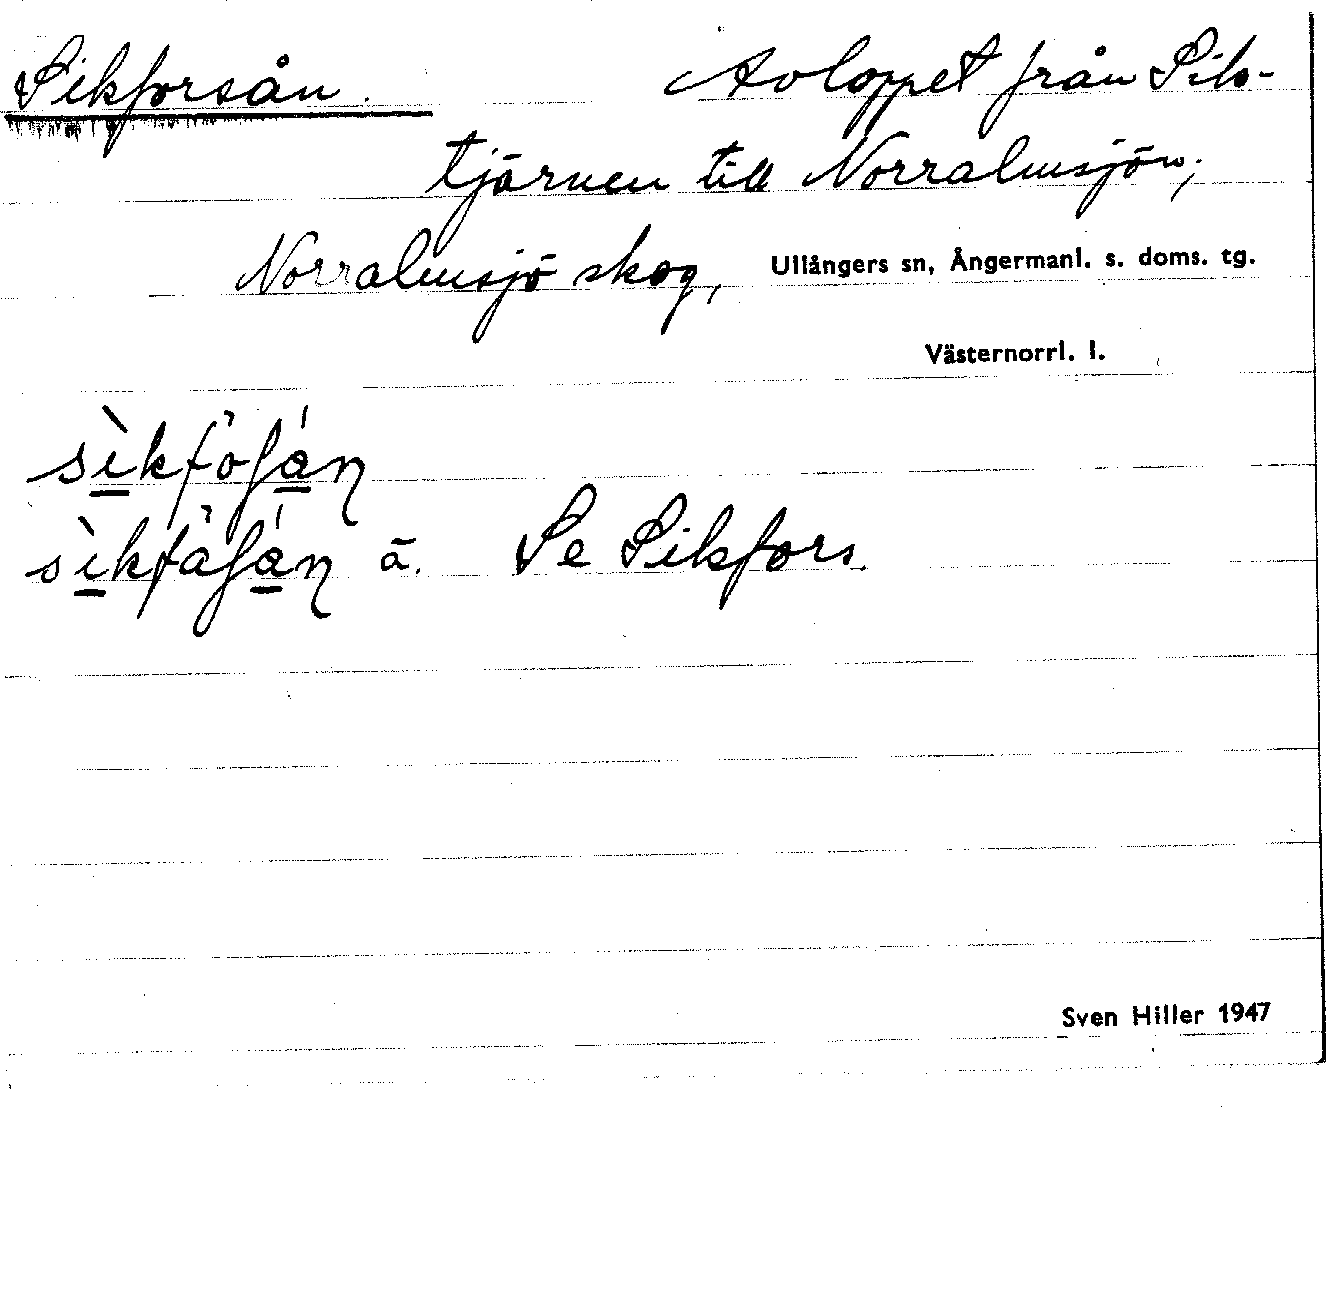 Sikforsån. Avloppet från Sik-
tjärnen till Norralmsjön,
Norralmsjö skog, Ullångers sn, Ångermanl. s. doms. tg.
Västernorrl. l.
ä. Se Sikfors.
Sven Hiller 1947